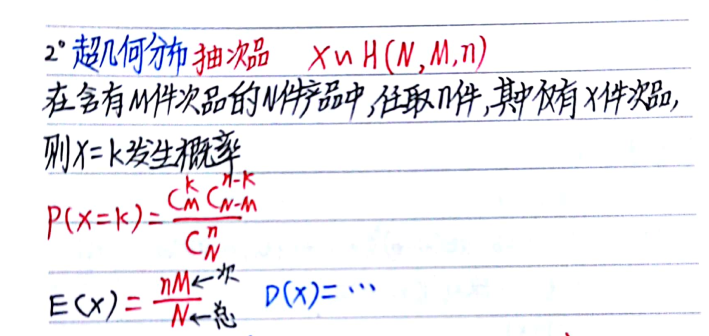 2° 超几何分布 抽次品 X∽H(N,M,n)
在含有M件次品的N件产品中,任取n件,其中仅有X件次品,
则X=k发生概率
P(X=k)=\frac{C_M^k C_{N-M}^{n-k}}{C_N^n}
E(X)=\frac{nM←次}{N←总} D(X)=…